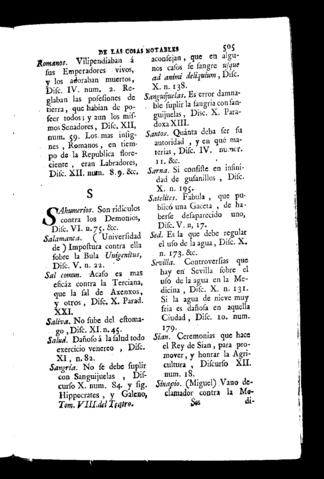 DE LAS COSAS NOTABLES 505
Romanos. Vilipendiaban á
sus Emperadores vivos,
y los adoraban muertos,
Disc. IV. num. 2. Re-
glaban las posesiones de
tierra, que habian de po-
seer todos; y aun los mis-
mos Senadores, Disc, XII,
num. 59. Los mas insig-
nes, Romanos, en tiem-
po de la Republica flore-
ciente, eran Labradores,
Disc. XII. num. 8. 9. &c.
S
SAhumerios. Son ridículos
contra los Demonios,
Disc. VI. n. 75. &c.
Salamanca. (Universidad
de) Impostura contra ella
sobre la Bula Unigenitus,
Disc. V. n. 22.
Sal comun. Acaso es mas
eficáz contra la Terciana,
que la sal de Axenxos,
y otros, Disc. X. Parad.
XXI.
Saliva. No sube del estoma-
go, Disc. XI. n. 45.
Salud. Dañoso á la salud todo
exercicio venereo, Disc.
XI, n. 82.
Sangria. No se debe suplir
con Sanguijuelas, Dis-
curso X. num. 84. y sig.
Hippocrates, y Galeno,
Tom. VIII. del Teatro.
aconsejan, que en algu-
nos casos se sangre usque
ad animi deliquium, Disc.
X. n. 138.
Sanguijuelas. Es error damna-
ble suplir la sangria con san-
guijuelas, Disc. X. Para-
doxa XIII.
Santos. Quánta deba ser su
autoridad, y en qué ma-
terias, Disc. IV. numer.
11. &c.
Sarna. Si consiste en infini-
dad de gusanillos, Disc.
X. n. 195.
Satelites. Fabula, que pu-
blicó una Gaceta, de ha-
berse desaparecido uno,
Disc. V. n, 17.
Sed. Es la que debe regular
el uso de la agua, Disc. X.
n. 173. &c.
Sevilla. Controversias que
hay en Sevilla sobre el
uso de la agua en la Me-
dicina, Disc. X. n. 131.
Si la agua de nieve muy
fria es dañosa en aquella
Ciudad, Disc. 10. num.
179.
Sian. Ceremonias que hace
el Rey de Sian, para pro-
mover, y honrar la Agri-
cultura, Discurso XII.
num. 18.
Sinapio. (Miguel) Vano de-
clamador contra la Me-
Sss di-